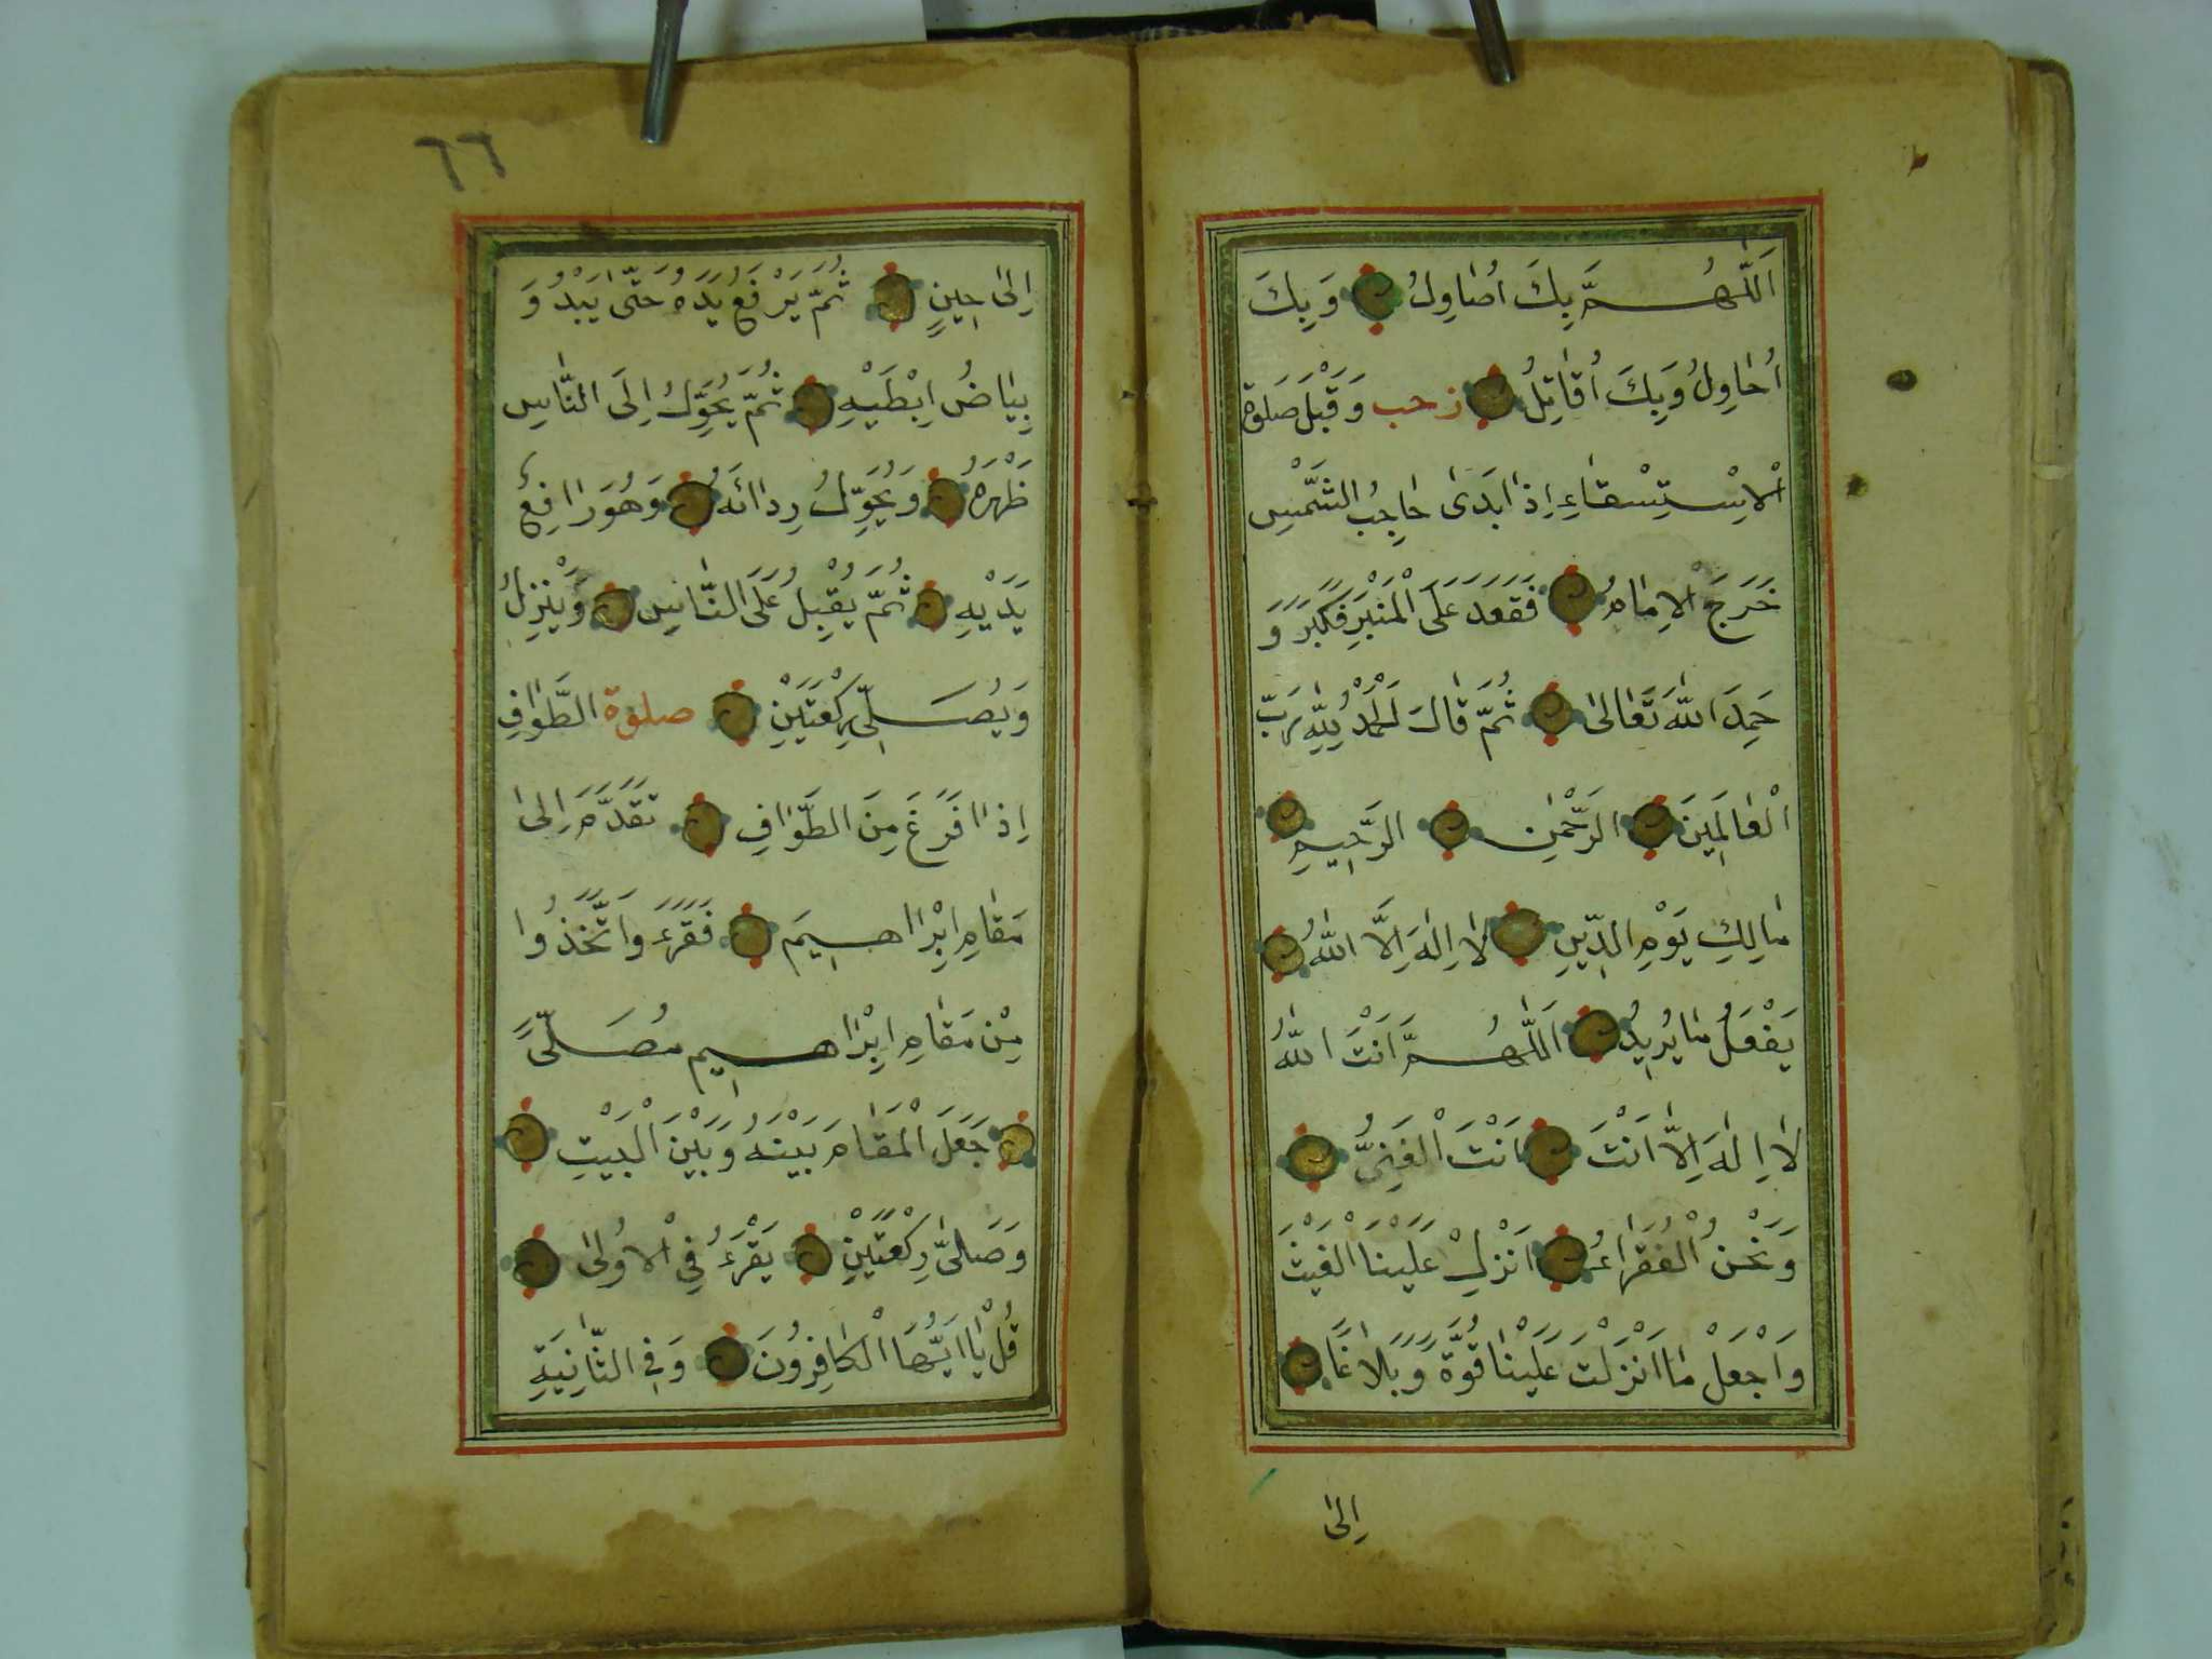 اَللّٰهُمَّ بِكَ اُصَاوِلُ وَبِكَ
اُحَاوِلُ وَبِكَ اُقَاتِلُ زحب وَقَبْلَ صَلٰوةِ
الْاِسْتِسْقَاءِ اِذَا بَدَى حَاجِبُ الشَّمْسِ
خَرَجَ الْاِمَامُ فَقَعَدَ عَلَى الْمِنْبَرِ فَكَبَّرَ وَ
حَمِدَ اللّٰهَ تَعَالٰى ثُمَّ قَالَ اَلْحَمْدُ لِلّٰهِ رَبِّ
الْعَالَمِينَ الرَّحْمٰنِ الرَّحِيمِ
مَالِكِ يَوْمِ الدِّينِ لَا اِلٰهَ اِلَّا اللّٰهُ
يَفْعَلُ مَا يُرِيدُ اَللّٰهُمَّ اَنْتَ اللّٰهُ
لَا اِلٰهَ اِلَّا اَنْتَ اَنْتَ الْغَنِيُّ
وَنَحْنُ الْفُقَرَاءُ اَنْزِلْ عَلَيْنَا الْغَيْثَ
وَاجْعَلْ مَا اَنْزَلْتَ عَلَيْنَا قُوَّةً وَبَلَاغًا
اِلٰى
٦٦
اِلٰى حِينٍ ثُمَّ يَرْفَعُ يَدَهُ حَتّٰى يَبْدُوَ
بِيَاضُ اِبْطَيْهِ ثُمَّ يُحَوِّلُ اِلَى النَّاسِ
ظَهْرَهُ وَيُحَوِّلُ رِدَائَهُ وَهُوَ رَافِعٌ
يَدَيْهِ ثُمَّ يُقْبِلُ عَلَى النَّاسِ وَيَنْزِلُ
وَيُصَلِّى رَكْعَتَيْنِ صلوة الطَّوَافِ
اِذَا فَرَغَ مِنَ الطَّوَافِ تَقَدَّمَ اِلٰى
مَقَامِ اِبْرَاهِيمَ فَقَرَءَ وَاتَّخِذُوا
مِنْ مَقَامِ اِبْرَاهِيم مُصَلًّى
جَعَلَ الْمَقَامَ بَيْنَهُ وَبَيْنَ الْبَيْتِ
وَصَلّٰى رَكْعَتَيْنِ يَقْرَءُ فِي الْاُولٰى
قُلْ يَا اَيُّهَا الْكَافِرُونَ وَفِي الثَّانِيَةِ